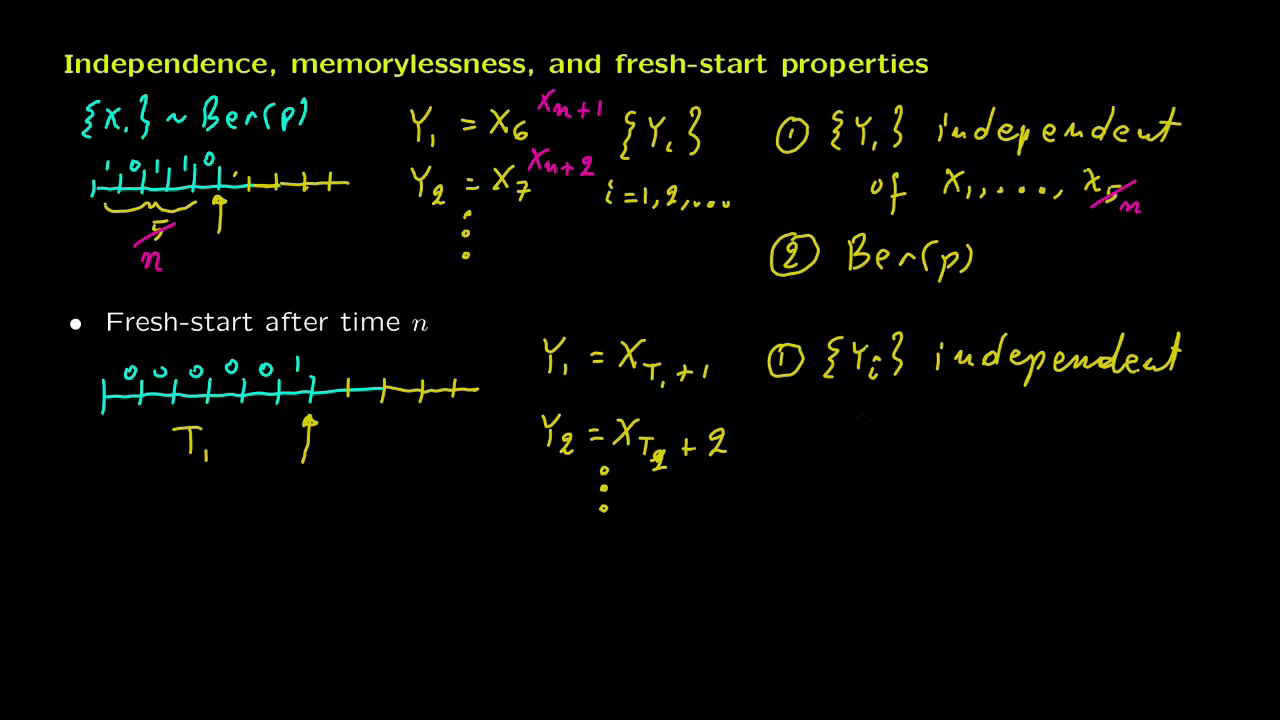 Independence, memorylessness, and fresh-start properties
{X_i} ~ Ber(p)
1 0 1 1 0
5
n
Y_1 = X_6 X_{n+1}
Y_2 = X_7 X_{n+2}
⋮
{Y_i}
i = 1, 2, ...
① {Y_i} independent
of X_1, ..., X_5 n
② Ber(p)
• Fresh-start after time n
0 0 0 0 0 1
T_1
Y_1 = X_{T_1 + 1}
Y_2 = X_{T_2} + 2
⋮
① {Y_i} independent